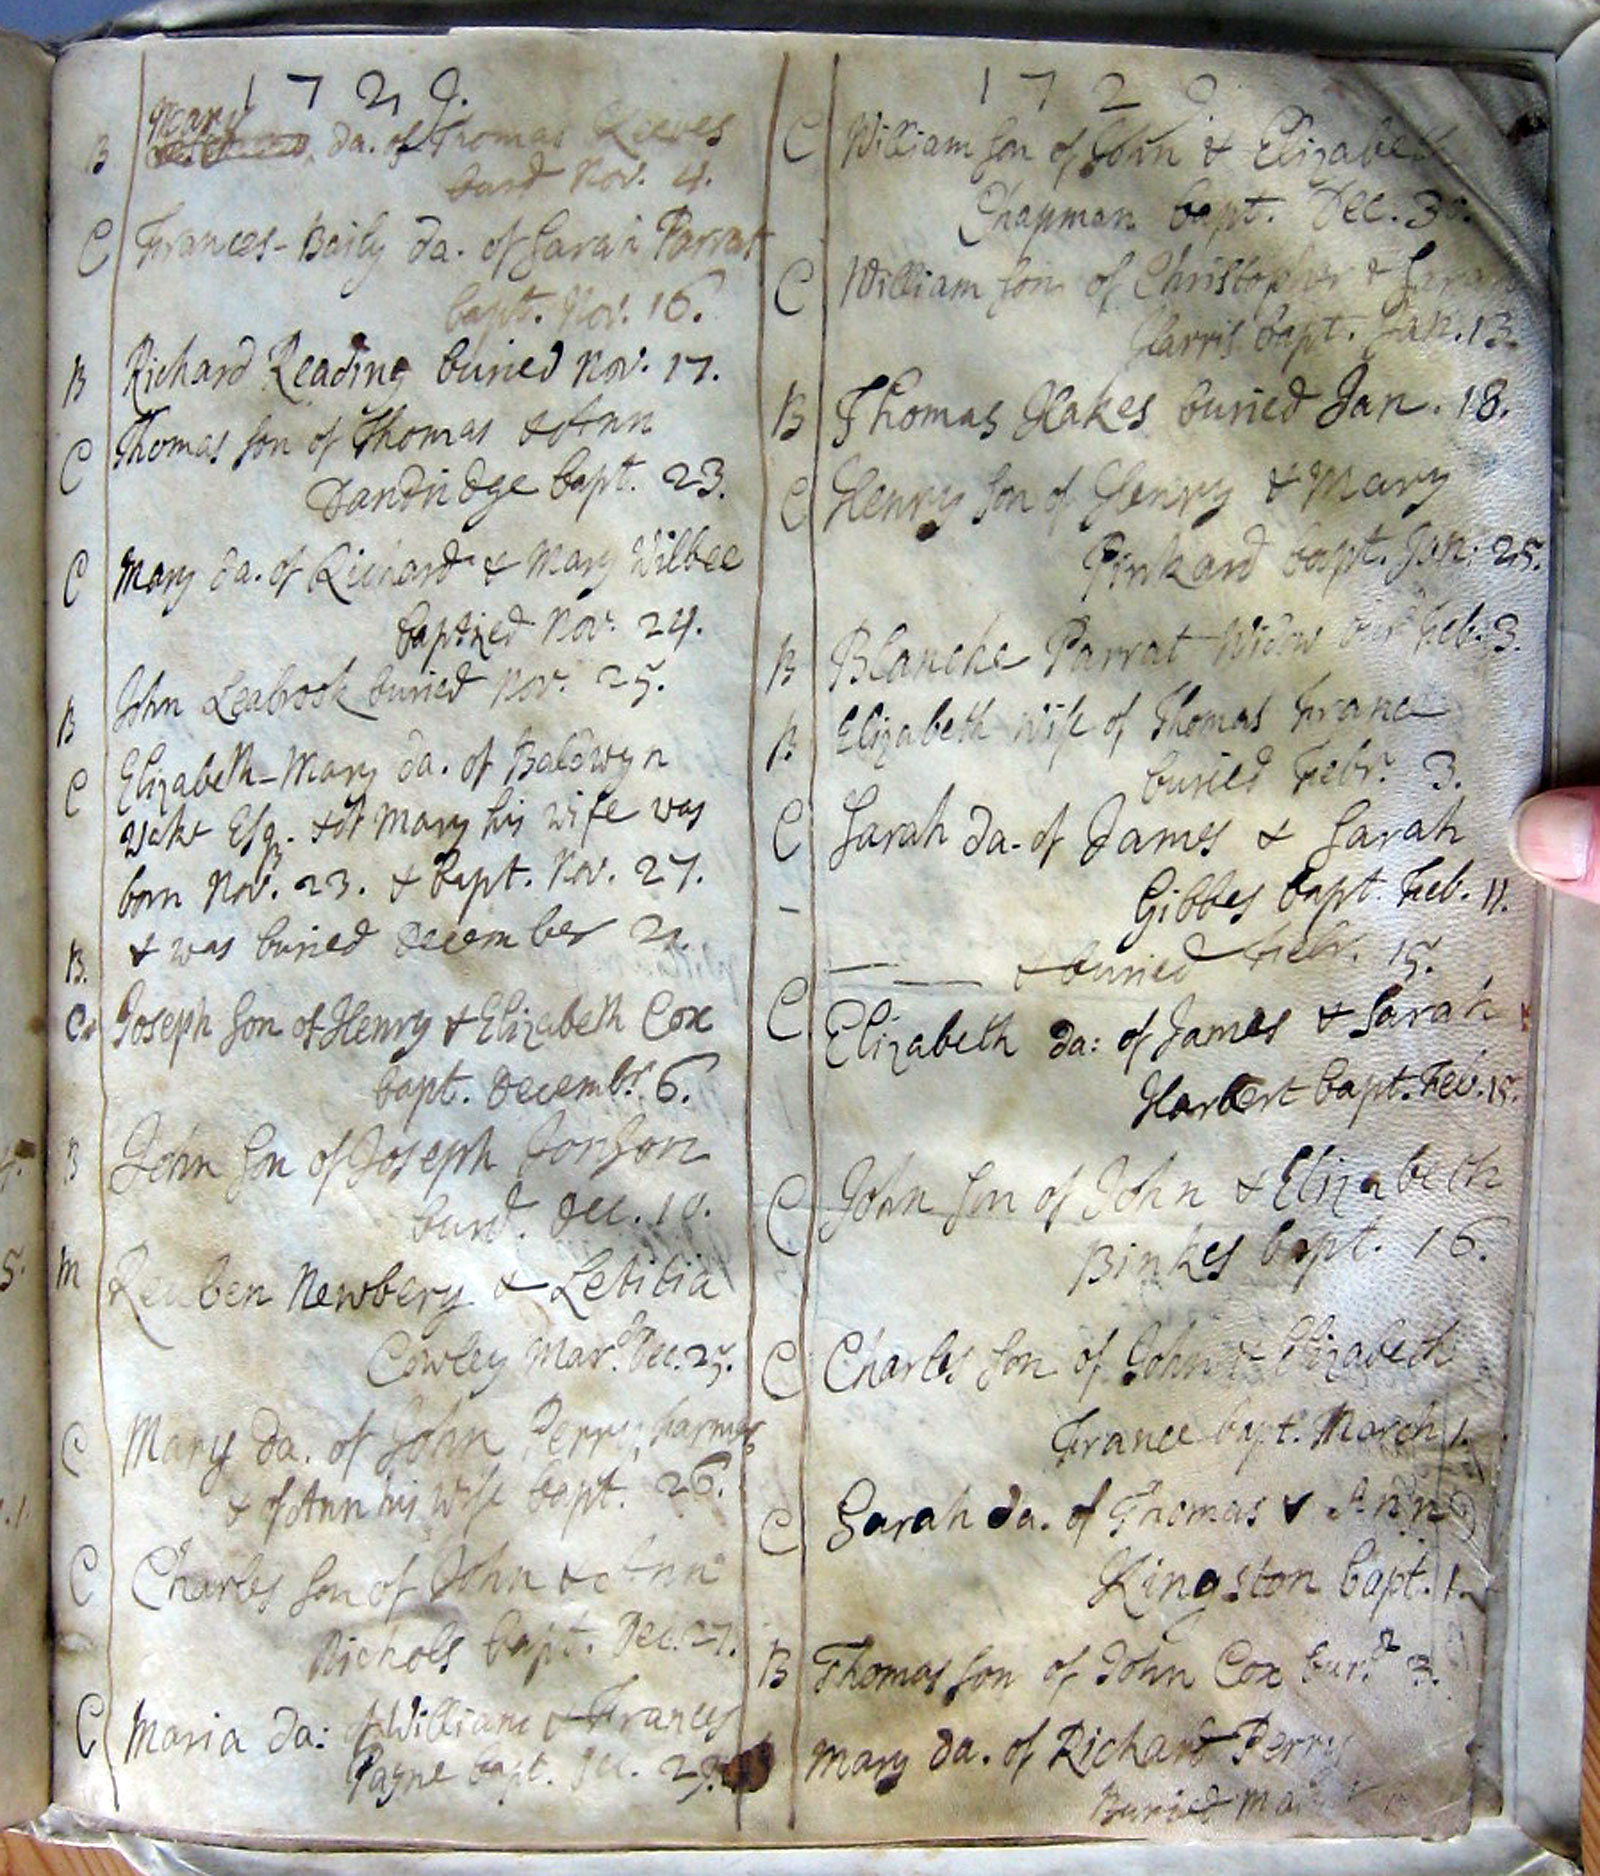 1729.
Mary
B da. of Thomas Reeves
burd Nov. 4.
C Frances-Baily da. of Sarah Parrat
bapt. Nov. 16.
B Richard Reading buried Nov. 17.
C Thomas son of Thomas & Ann
Dandridge bapt. 23.
C Mary da. of Richard & Mary Wilbee
baptized Nov. 24.
B John Seabrook buried Nov. 25.
C Elizabeth-Mary da. of Baldwyn
Wake Esq. & of Mary his wife was
born Nov. 23. & bapt. Nov. 27.
B. & was buried December 2.
C Joseph son of Henry & Elizabeth Cox
bapt. Decembr. 6.
B John son of Joseph Jonson
burd. Dec. 10.
M Reuben Newbery & Letitia
Cowley Mard. Dec. 25.
C Mary da. of John Perry, farmer
& of Ann his wife bapt. 26.
C Charles son of John & Ann
Nichols bapt. Dec. 27.
C Maria da: of William & Frances
Payne bapt. Dec. 29.
1729.
C William son of John & Elizabeth
Chapman bapt. Dec. 30.
C William son of Christopher & Sarah
Harris bapt. Jan. 13.
B Thomas Oakes buried Jan. 18.
C Henry son of Henry & Mary
Pinkard bapt. Jan: 25.
B Blanche Parrat Widow burd Feb. 3.
B Elizabeth wife of Thomas France
buried Febr. 3.
C Sarah da. of James & Sarah
Gibbes bapt. Feb. 11.
— — — & buried Febr. 15.
C Elizabeth da: of James & Sarah
Harbert bapt. Feb. 15.
C John son of John & Elizabeth
Binkes bapt. 16.
C Charles son of John & Elizabeth
France bapt. March 1.
C Sarah da. of Thomas & Ann
Kingston bapt. 1.
B Thomas son of John Cox burd. 3.
Mary da. of Richard Perry
Buried